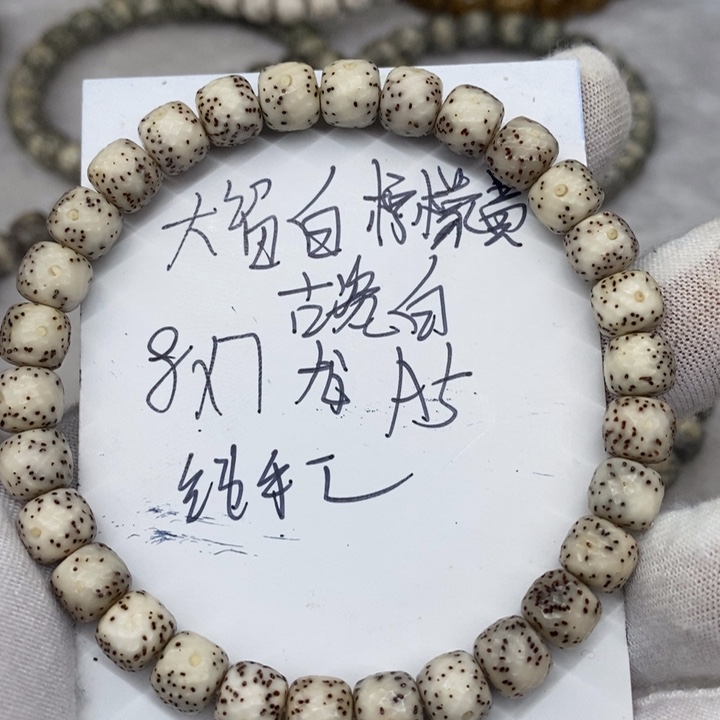 大留白 柠檬黄
古瓷白
8X7 友 A5
纯手工